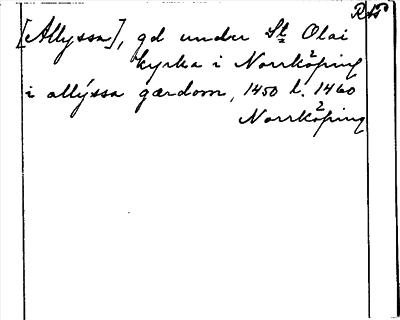 R 150
[Allyssa], gd under S:t Olai
kyrka i Norrköping
i allýssa gærdom, 1450 t. 1460
Norrköping